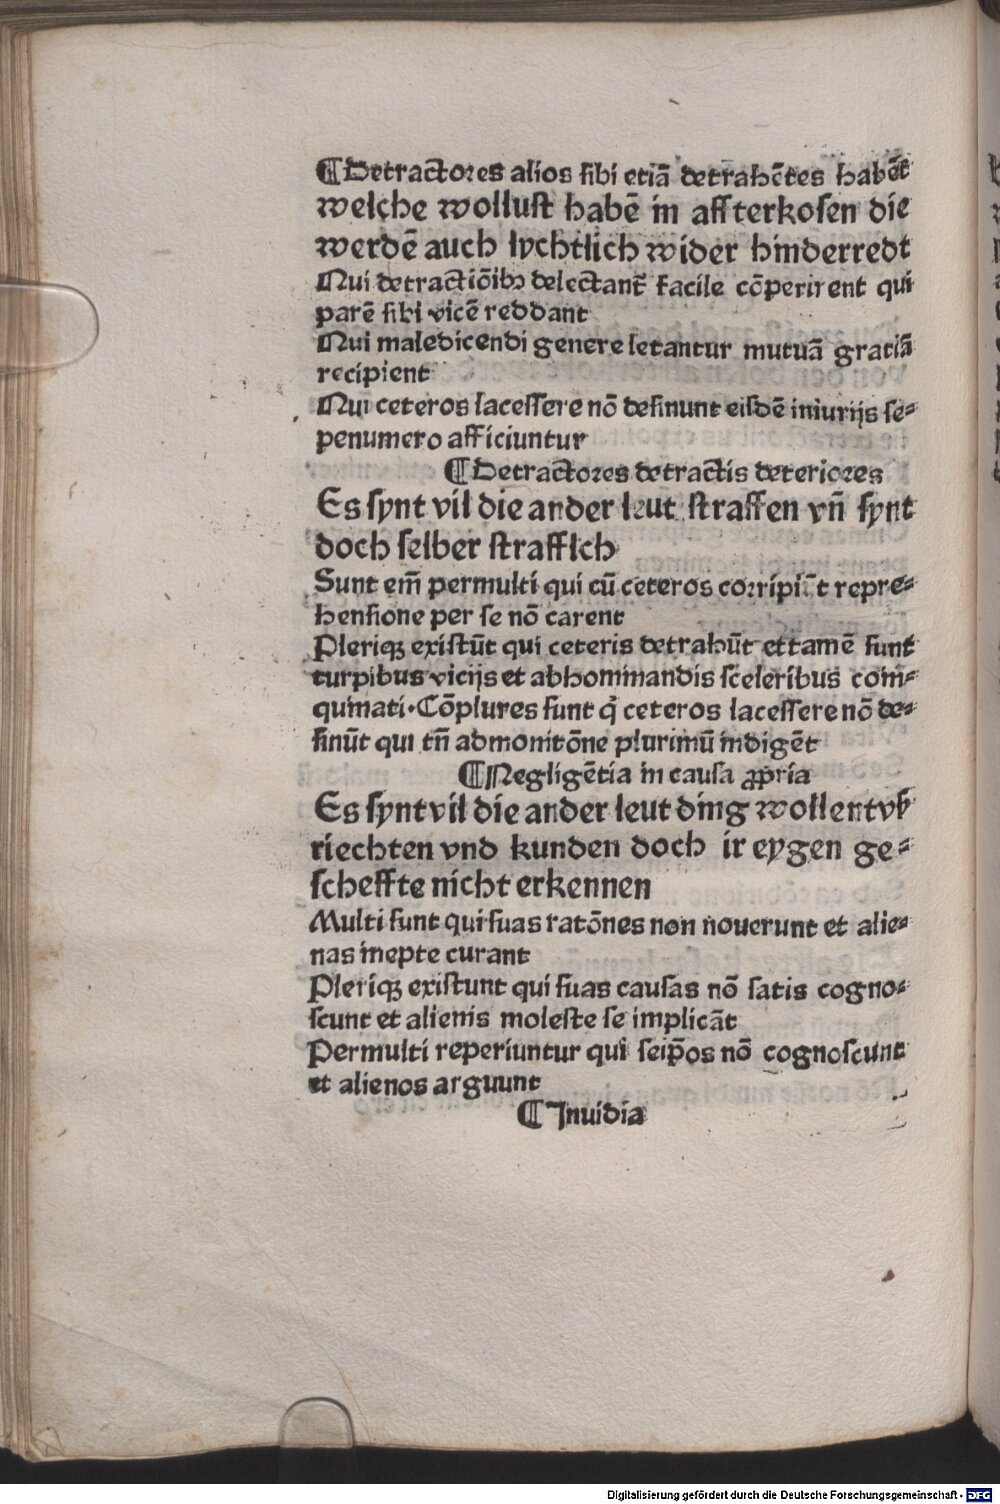 ¶Detractores alios sibi etiā detrahētes habēt
welche wollust habē in affterkosen die
werdē auch lychtlich wider hinderredt
Qui detractiōibꝫ delectant᷑ facile cōperirent qui
parē sibi vicē reddant
Qui maledicendi genere letantur mutuā gratiā
recipient
Qui ceteros lacessere nō desinunt eisdē iniurijs se⸗
penumero afficiuntur
¶Detractores detractis deteriores
Es synt vil die ander leut straffen vn̄ synt
doch selber strafflch
Sunt em̄ permulti qui cū ceteros corripiūt repre⸗
hensione per se nō carent
Pleriqꝫ existūt qui ceteris detrahūt et tamē sunt
turpibus vicijs et abhominandis sceleribus com⸗
quinati·Cōplures sunt q̇ ceteros lacessere nō de⸗
sinūt qui tn̄ admonitōne plurimū indigēt
¶Negligētia in causa ꝓpria
Es synt vil die ander leut ding wollent vß
riechten vnd kunden doch ir eygen ge⸗
scheffte nicht erkennen
Multi sunt qui suas ratōnes non nouerunt et alie⸗
nas inepte curant
Pleriqꝫ existunt qui suas causas nō satis cogno⸗
scunt et alienis moleste se implicāt
Permulti reperiuntur qui seip̄os nō cognoscunt
et alienos arguunt
¶Inuidia
Digitalisierung gefördert durch die Deutsche Forschungsgemeinschaft - DFG